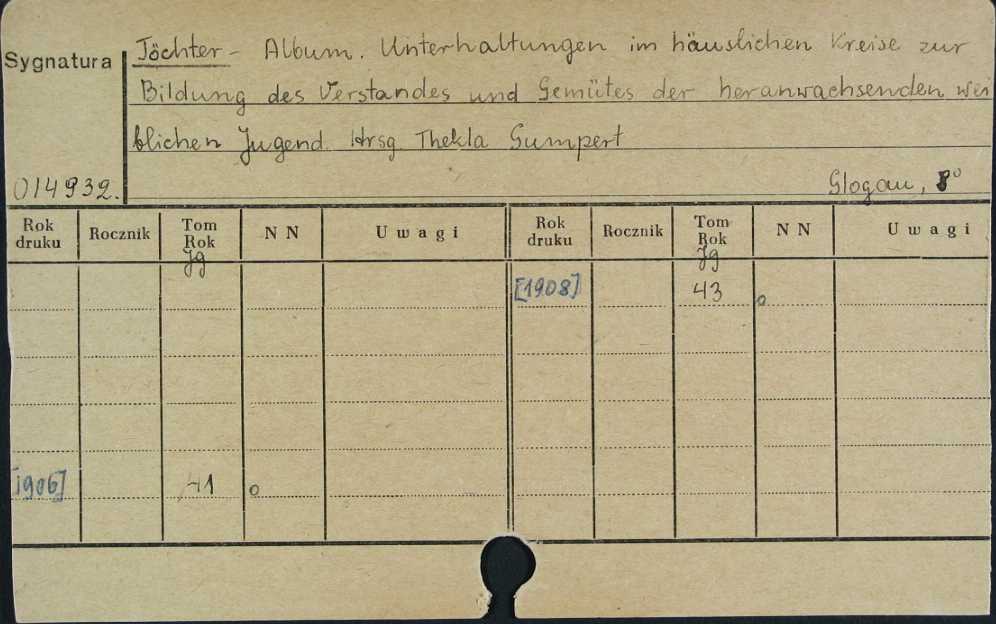 Sygnatura
Töchter - Album. Unterhaltungen im häuslichen Kreise zur
Bildung des Verstandes und Gemütes der heranwachsenden wei
blichen Jugend. Hrsg Thekla Gumpert
014932.
Glogau, 8°
Rok druku Rocznik Tom Rok NN Uwagi Rok druku Rocznik Tom Rok NN Uwagi
Jg Jg
[1908] 43 o
[1906] 41 o